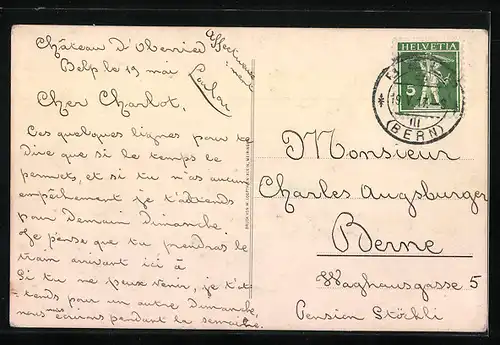 Château D'Oberried
Belp le 19 mai
Affectueuse
ment
Loulou
Cher Charlot.
Ces quelques lignes pour te
dire que si le temps le
permets, et si tu n'as aucun
empêchement je t'attends
pour Demain Dimanche.
Je pense que tu prendras le
train arrivant ici à
Si tu ne peux venir, je t'at-
tends pour un autre Dimanche,
nous nous écrirons pendant la semaine.
HELVETIA
5
III
(BERN)
Monsieur
Charles Augsburger
Berne
Waghausgasse 5
Pension Stöckli